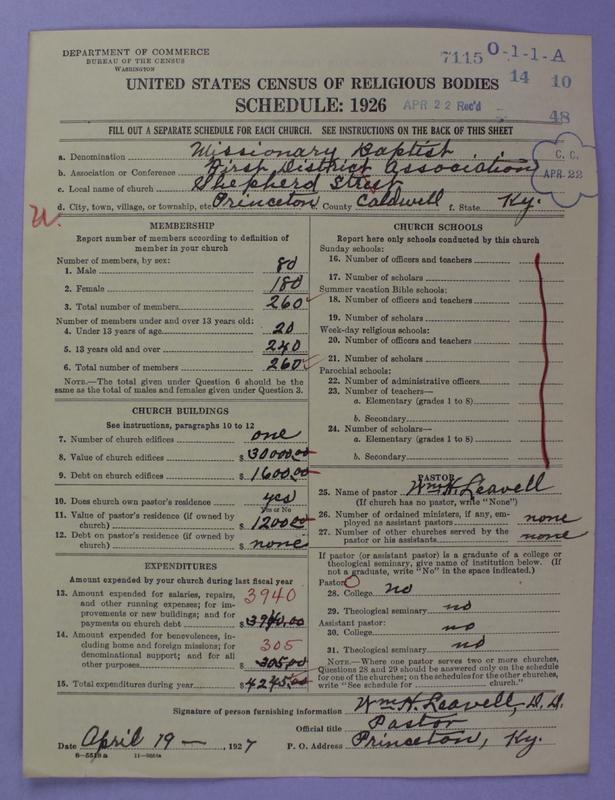 DEPARTMENT OF COMMERCE
BUREAU OF THE CENSUS
WASHINGTON
7115 O-1-1-A
14 10
48
UNITED STATES CENSUS OF RELIGIOUS BODIES
SCHEDULE: 1926
APR 22 Rec'd
FILL OUT A SEPARATE SCHEDULE FOR EACH CHURCH. SEE INSTRUCTIONS ON THE BACK OF THIS SHEET
C. C.
APR. 22
a. Denomination Missionary Baptist
b. Association or Conference First District Association
c. Local name of church Shepherd Street
d. City, town, village, or township, etc. Princeton e. County Caldwell f. State Ky.
MEMBERSHIP
Report number of members according to definition of
member in your church
Number of members, by sex:
1. Male 80
2. Female 180
3. Total number of members 260
Number of members under and over 13 years old:
4. Under 13 years of age 20
5. 13 years old and over 240
6. Total number of members 260
NOTE.—The total given under Question 6 should be the
same as the total of males and females given under Question 3.
CHURCH BUILDINGS
See instructions, paragraphs 10 to 12
7. Number of church edifices one
8. Value of church edifices $30000.00
9. Debt on church edifices $1600.00
10. Does church own pastor's residence yes
Yes or No
11. Value of pastor's residence (if owned by
church) $1200.00
12. Debt on pastor's residence (if owned by
church) $none
EXPENDITURES
Amount expended by your church during last fiscal year
13. Amount expended for salaries, repairs,
and other running expenses; for im-
provements or new buildings; and for
payments on church debt $3940.00
3940
14. Amount expended for benevolences, in-
cluding home and foreign missions; for
denominational support; and for all
other purposes $305.00
305
15. Total expenditures during year $4245.00
CHURCH SCHOOLS
Report here only schools conducted by this church
Sunday schools:
16. Number of officers and teachers
17. Number of scholars
Summer vacation Bible schools:
18. Number of officers and teachers
19. Number of scholars
Week-day religious schools:
20. Number of officers and teachers
21. Number of scholars
Parochial schools:
22. Number of administrative officers
23. Number of teachers—
a. Elementary (grades 1 to 8)
b. Secondary
24. Number of scholars—
a. Elementary (grades 1 to 8)
b. Secondary
PASTOR
25. Name of pastor Wm. H. Leavell
(If church has no pastor, write "None")
26. Number of ordained ministers, if any, em-
ployed as assistant pastors none
27. Number of other churches served by the
pastor or his assistants none
If pastor (or assistant pastor) is a graduate of a college or
theological seminary, give name of institution below. (If
not a graduate, write "No" in the space indicated.)
Pastor:
28. College no
29. Theological seminary no
Assistant pastor:
30. College no
31. Theological seminary no
NOTE.—Where one pastor serves two or more churches,
Questions 28 and 29 should be answered only on the schedule
for one of the churches; on the schedules for the other churches,
write "See schedule for church."
Signature of person furnishing information Wm H. Leavell, D. D.
Official title Pastor
Date April 19 —, 1927 P. O. Address Princeton, Ky.